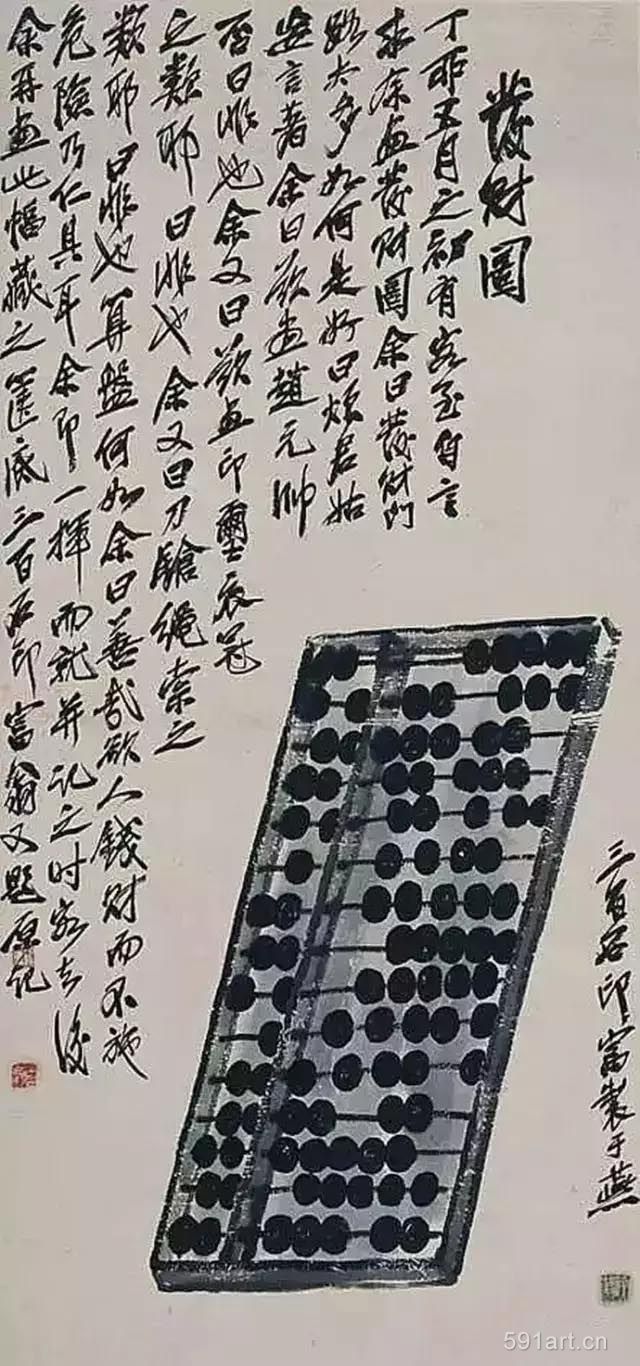 發財圖
丁卯五月之初有客至自言
求余畫發財圖余曰發財門
路太多如何是好曰煩君姑
妄言著余曰欲畫趙元帥
否曰非也余又曰欲畫印璽衣冠
之類耶曰非也余又曰刀鎗繩索之
類耶曰非也算盤何如余曰善哉欲人錢財而不施
危險乃仁具耳余即一揮而就并記之時客去後
余再畫此幅藏之篋底三百石印富翁又題原記
三百石印富製于燕
591art.cn